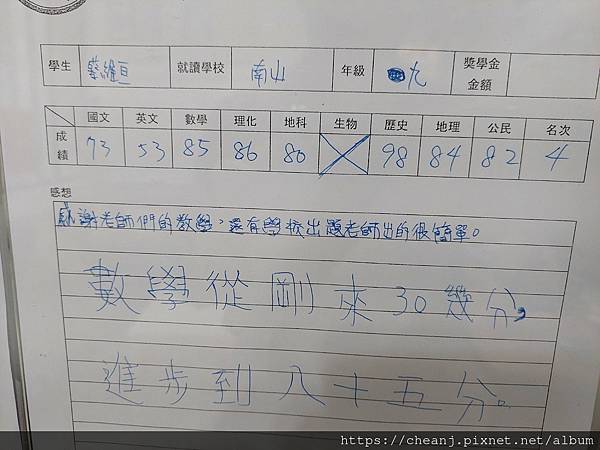 學生 蔡繼亘 就讀學校 南山 年級 九 獎學金金額
國文 英文 數學 理化 地科 生物 歷史 地理 公民 名次
成績 73 53 85 86 80 98 84 82 4
感想
感謝老師們的教學,還有學校出題老師出的很簡單。
數學從剛來30幾分,
進步到八十五分。
https://cheanj.pixnet.net/album